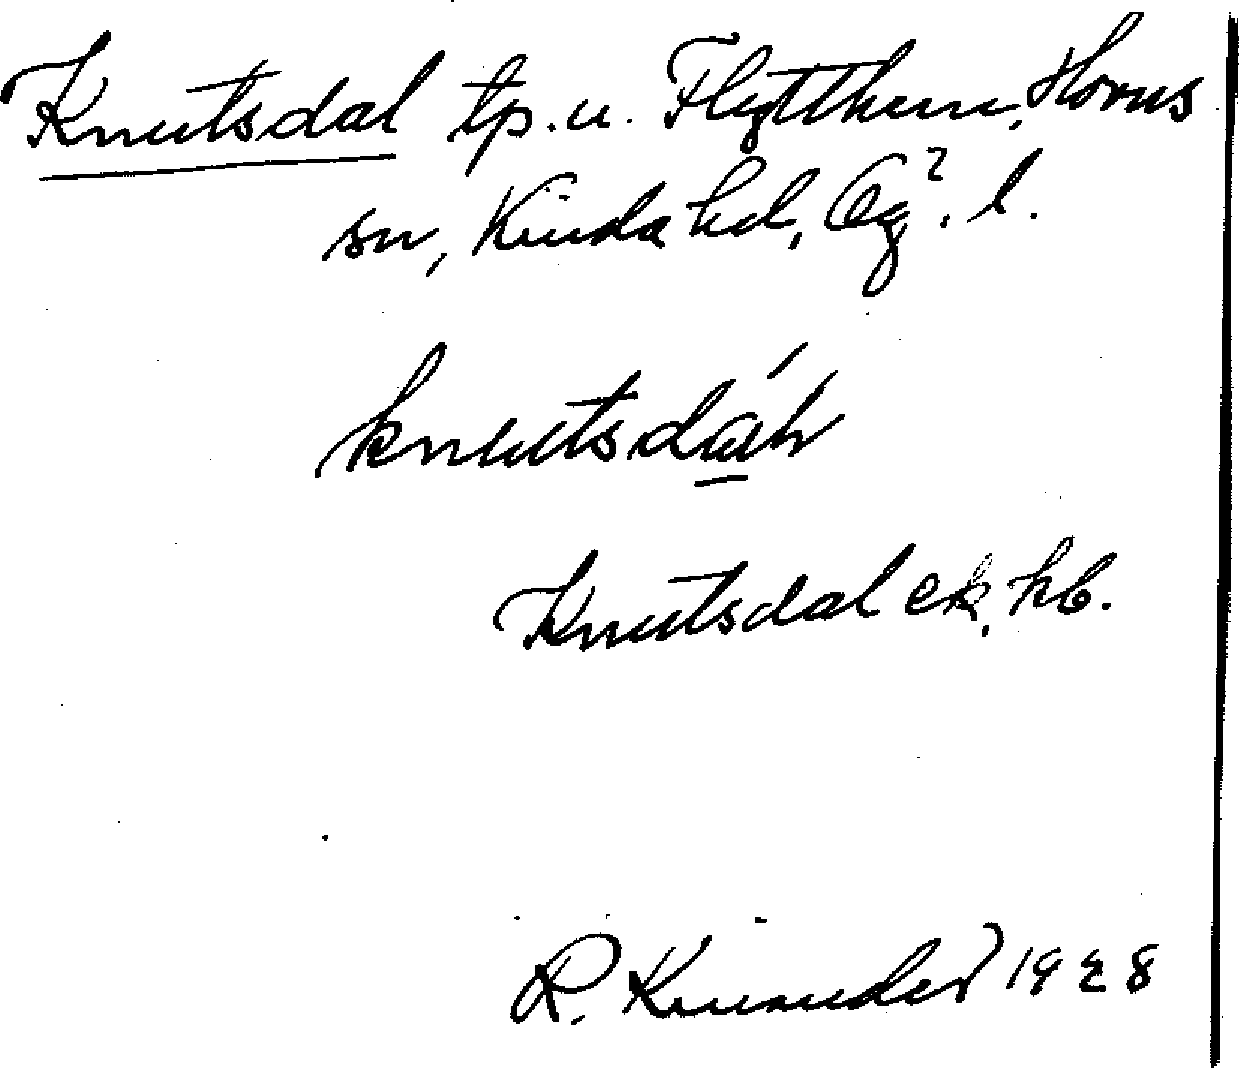 Knutsdal tp. u. Flytthem, Horns
sn, Kinda hd, Ög. l.
Knutsdal ek, kb.
R. Kinander 1928